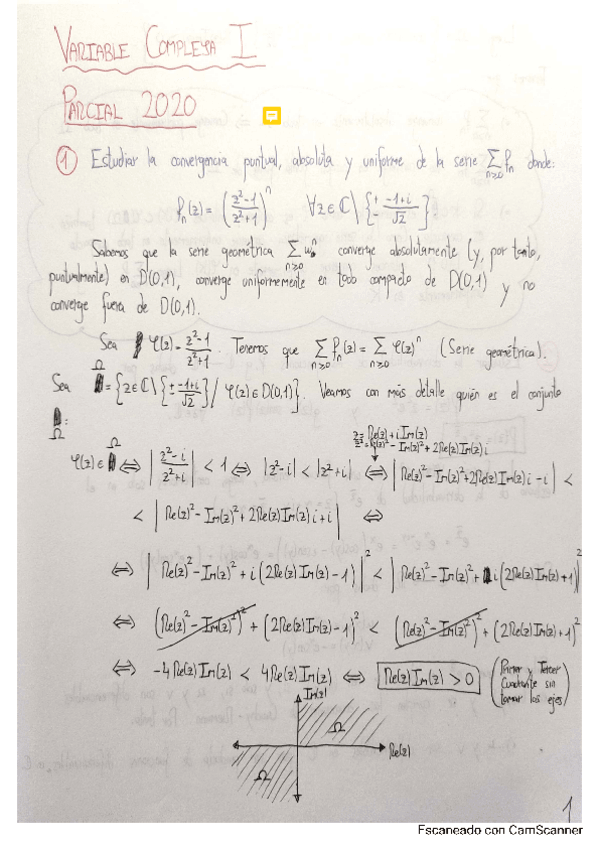 VARIABLE COMPLEJA I
PARCIAL 2020
① Estudiar la convergencia puntual, absoluta y uniforme de la serie ∑_{n≥0} f_n donde:
f_n(z) = ((z²-1)/(z²+1))^n ∀z∈ℂ\{± (-1+i)/√2}.
Sabemos que la serie geométrica ∑_{n≥0} w^n converge absolutamente (y, por tanto,
puntualmente) en D(0,1), converge uniformemente en todo compacto de D(0,1) y no
converge fuera de D(0,1).
Sea φ(z) = (z²-1)/(z²+1). Tenemos que ∑_{n≥0} f_n(z) = ∑_{n≥0} φ(z)^n (Serie geométrica)
Sea Ω = {z∈ℂ\{± (-1+i)/√2} / φ(z)∈D(0,1)}. Veamos con más detalle quién es el conjunto
Ω:
z = Re(z)+i Im(z)
z² = Re(z)² - Im(z)² + 2Re(z)Im(z)i
φ(z)∈Ω ⇔ |(z²-i)/(z²+i)| < 1 ⇔ |z²-i| < |z²+i| ⇔ |Re(z)²-Im(z)²+2Re(z)Im(z)i-i| <
< |Re(z)²-Im(z)²+2Re(z)Im(z)i+i| ⇔
⇔ |Re(z)²-Im(z)²+i(2Re(z)Im(z)-1)|² < |Re(z)²-Im(z)²+i(2Re(z)Im(z)+1)|²
⇔ (Re(z)²-Im(z)²)² + (2Re(z)Im(z)-1)² < (Re(z)²-Im(z)²)² + (2Re(z)Im(z)+1)²
⇔ -4Re(z)Im(z) < 4Re(z)Im(z) ⇔ Re(z)Im(z) > 0 (Primer y Tercer
Cuadrante sin
tomar los ejes)
Im(z)
Ω
Re(z)
Ω
1
Escaneado con CamScanner